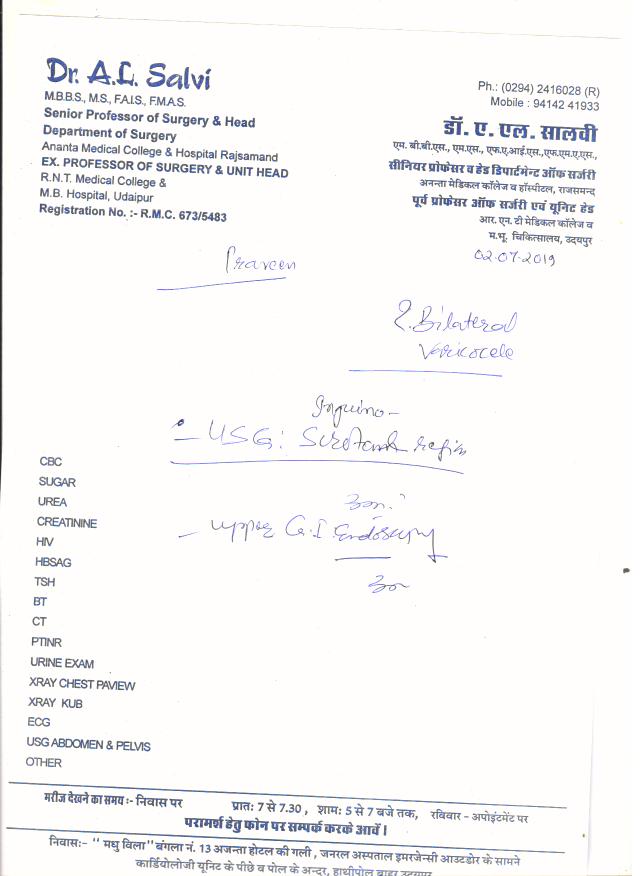 Dr. A.L. Salvi
M.B.B.S., M.S., F.A.I.S., F.M.A.S.
Senior Professor of Surgery & Head
Department of Surgery
Ananta Medical College & Hospital Rajsamand
EX. PROFESSOR OF SURGERY & UNIT HEAD
R.N.T. Medical College &
M.B. Hospital, Udaipur
Registration No. :- R.M.C. 673/5483
Ph.: (0294) 2416028 (R)
Mobile : 94142 41933
डॉ. ए. एल. सालवी
एम. बी.बी.एस., एम.एस., एफ.ए.आई.एस.,एफ.एम.ए.एस.,
सीनियर प्रोफेसर व हेड डिपार्टमेन्ट ऑफ सर्जरी
अनन्ता मेडिकल कॉलेज व हॉस्पीटल, राजसमन्द
पूर्व प्रोफेसर ऑफ सर्जरी एवं यूनिट हेड
आर. एन. टी मेडिकल कॉलेज व
म.भू. चिकित्सालय, उदयपुर
02.07.2019
Praveen
Bilateral
Varicocele
Inguino-
- USG: Scrotal region
- Upper G.I. Endoscopy
CBC
SUGAR
UREA
CREATININE
HIV
HBSAG
TSH
BT
CT
PTINR
URINE EXAM
XRAY CHEST PAVIEW
XRAY KUB
ECG
USG ABDOMEN & PELVIS
OTHER
मरीज देखने का समय :- निवास पर प्रातः 7 से 7.30 , शामः 5 से 7 बजे तक, रविवार - अपोइंटमेंट पर
परामर्श हेतु फोन पर सम्पर्क करके आवें।
निवासः- " मधु विला" बंगला नं. 13 अजन्ता होटल की गली , जनरल अस्पताल इमरजेन्सी आउटडोर के सामने
कार्डियोलोजी यूनिट के पीछे व पोल के अन्दर, हाथीपोल बाहर उदयपुर